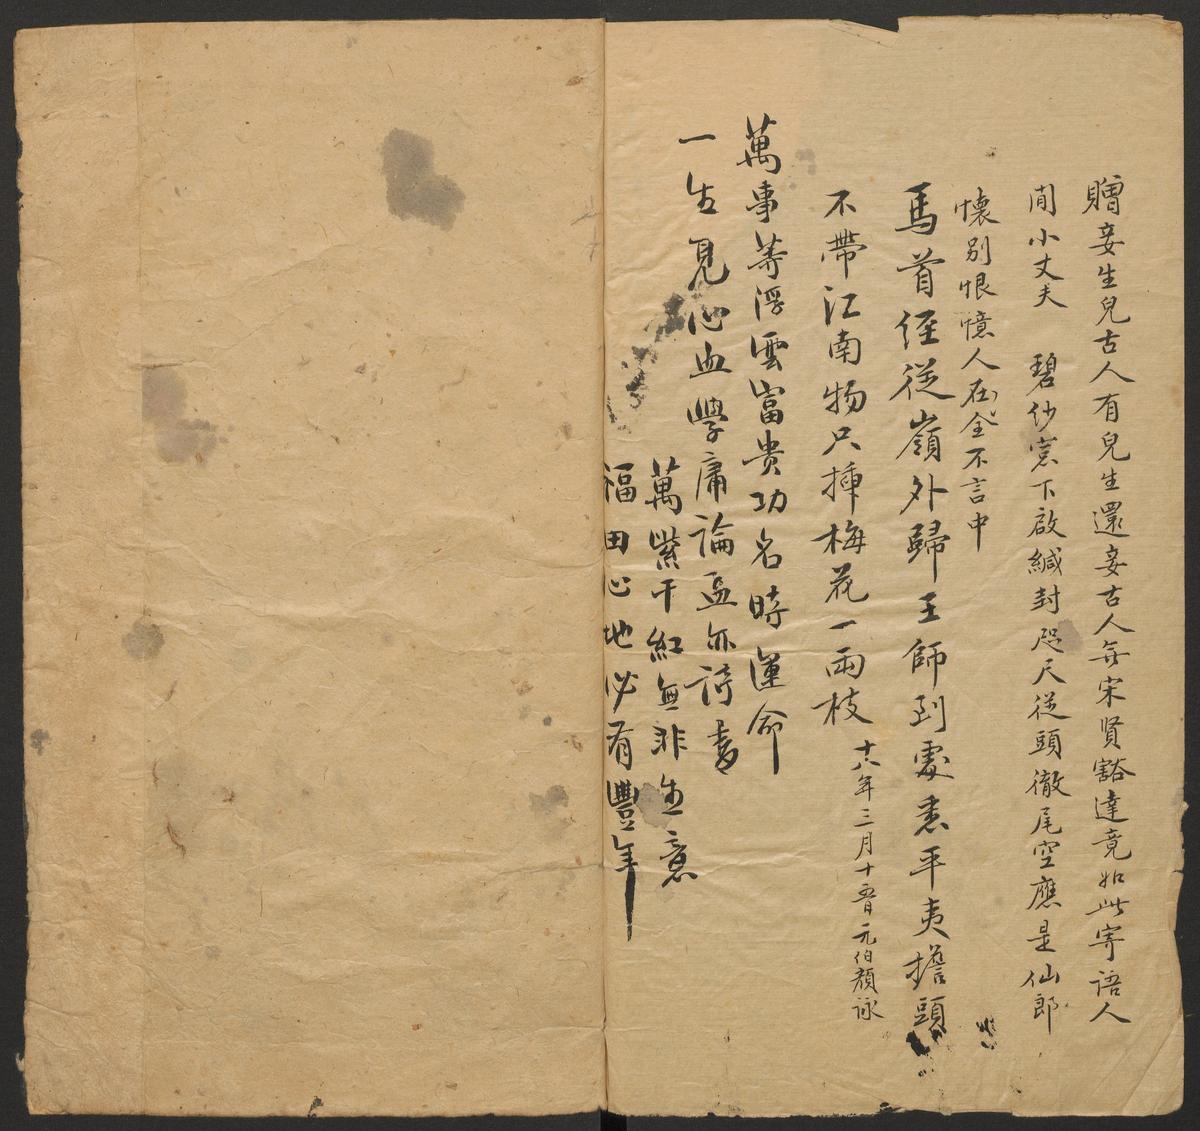 贈妾生兒古人有兒生還妾古人無宋賢豁達竟如此寄語人
閒小丈夫 碧紗窓下啟緘封咫尺從頭徹尾空應是仙郎
懷別恨憶人在全不言中
馬首徑從嶺外歸王師到處悉平夷擔頭
不帶江南物只揷梅花一兩枝 十六年三月十五日元伯顏詠
萬事等浮雲富貴功名時運命
一生見心血學庸論孟亦詩書
萬紫千紅無非生意
福田心地必有豐年